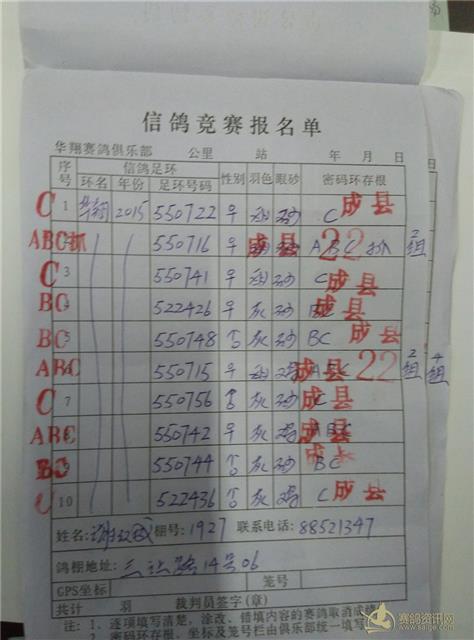 信鸽竞赛报名单
华翔赛鸽俱乐部 公里 站 年 月 日
序号 信鸽足环 性别 羽色 眼砂 密码环存根
环名 年份 足环号码
C 1 华翔 2015 550722 ♀ 砂 C 成县
ABC抓 550716 ♀ 成县 ABC抓 22 2组
C 3 550741 ♀ 砂 C 成县
BC 522426 ♀ 灰 砂 BC 成县
BC 5 550748 灰 砂 BC 成县
ABC 550715 ♀ ABC 成县 22 2组 4组
C 7 550756 灰 砂 C 成县
ABC 550742 ♀ 灰 ABC 成县
BC 550744 灰 砂 BC 成县
C 10 522436 灰 C 成县
姓名: 棚号: 1927 联系电话: 88521347
鸽棚地址: 三 路14号06
GPS坐标 笼号
共计 羽 裁判员签字(章)
注:1、逐项填写清楚,涂改、错填内容的赛鸽取消成绩
2、密码环存根、坐标及笼号栏由俱乐部统一填写
赛鸽资讯网
www.saige.com